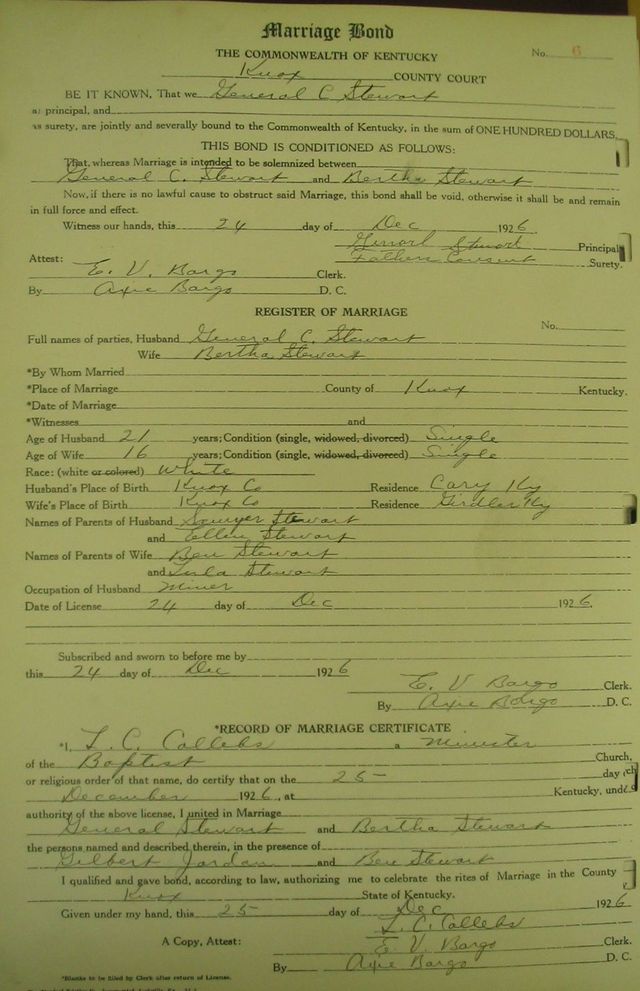 Marriage Bond
THE COMMONWEALTH OF KENTUCKY
No. 6
Knox COUNTY COURT
BE IT KNOWN, That we General C Stewart
as principal, and
as surety, are jointly and severally bound to the Commonwealth of Kentucky, in the sum of ONE HUNDRED DOLLARS.
THIS BOND IS CONDITIONED AS FOLLOWS:
That, whereas Marriage is intended to be solemnized between
General C. Stewart and Bertha Stewart
Now, if there is no lawful cause to obstruct said Marriage, this bond shall be void, otherwise it shall be and remain
in full force and effect.
Witness our hands, this 24 day of Dec 1926
Stewart Principal
Attest: Fathers Consent Surety.
E. V. Bargo Clerk.
By Axie Bargo D. C.
REGISTER OF MARRIAGE
No.
Full names of parties, Husband General C. Stewart
Wife Bertha Stewart
*By Whom Married
*Place of Marriage County of Knox Kentucky.
*Date of Marriage
*Witnesses and
Age of Husband 21 years; Condition (single, widowed, divorced) Single
Age of Wife 16 years; Condition (single, widowed, divorced) Single
Race: (white or colored) White
Husband's Place of Birth Knox Co Residence Cary Ky
Wife's Place of Birth Knox Co Residence Girdler Ky
Names of Parents of Husband Sawyer Stewart
and Ellen Stewart
Names of Parents of Wife Ben Stewart
and Lula Stewart
Occupation of Husband Miner
Date of License 24 day of Dec 1926.
Subscribed and sworn to before me by
this 24 day of Dec 1926
E. V Bargo Clerk.
By Axie Bargo D. C.
*RECORD OF MARRIAGE CERTIFICATE
*I, L. C. Collebs a Minister
of the Baptist Church,
or religious order of that name, do certify that on the 25- day
December 1926, at Kentucky, under
authority of the above license, I united in Marriage
General Stewart and Bertha Stewart
the persons named and described therein, in the presence of
Gilbert Jordan and Ben Stewart
I qualified and gave bond, according to law, authorizing me to celebrate the rites of Marriage in the County
Knox State of Kentucky.
Given under my hand, this 25 day of Dec 1926
L. C. Collebs
A Copy, Attest: E. V. Bargo Clerk.
By Axie Bargo D. C.
*Blanks to be filed by Clerk after return of License.